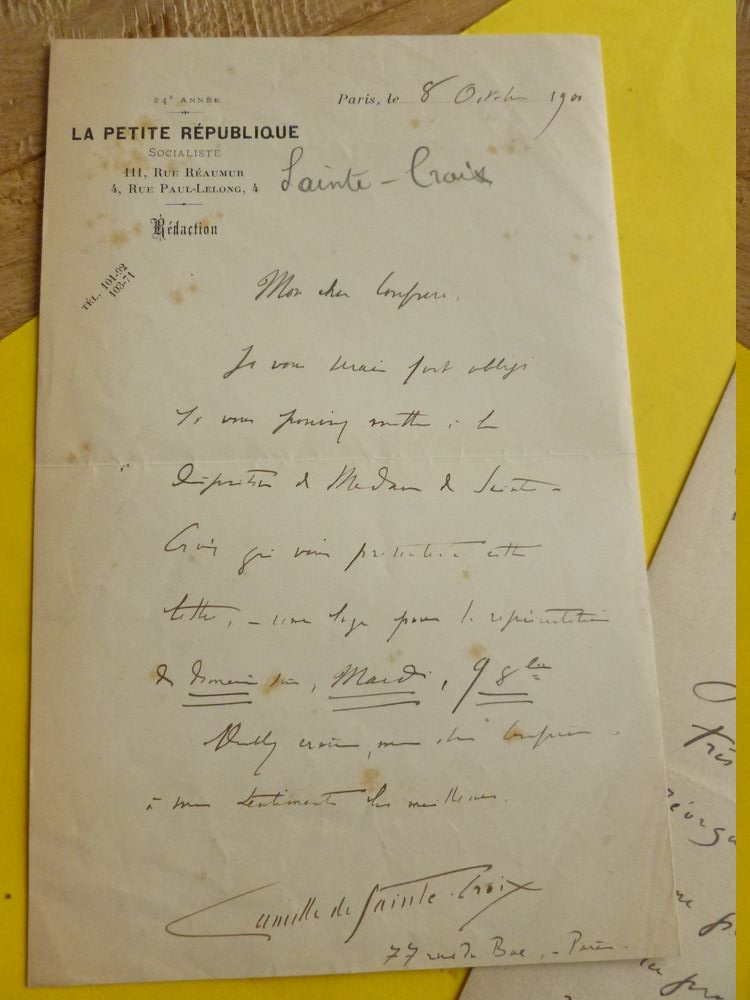 24e ANNÉE
Paris, le 8 Octobre 1900
LA PETITE RÉPUBLIQUE
SOCIALISTE
111, RUE RÉAUMUR
4, RUE PAUL-LELONG, 4
Sainte-Croix
Rédaction
TÉL. 101-92
103-71
Mon cher Confrère.
Je vous serais fort obligé
si vous pouviez mettre à la
disposition de Madame de Sainte-
Croix qui vous présentera cette
lettre, - une loge pour la représentation
de demain soir, Mardi, 9 8bre
Veuillez croire, mon cher Confrère
à mes sentiments les meilleurs.
Camille de Sainte-Croix
77 rue du Bac, - Paris.
Très